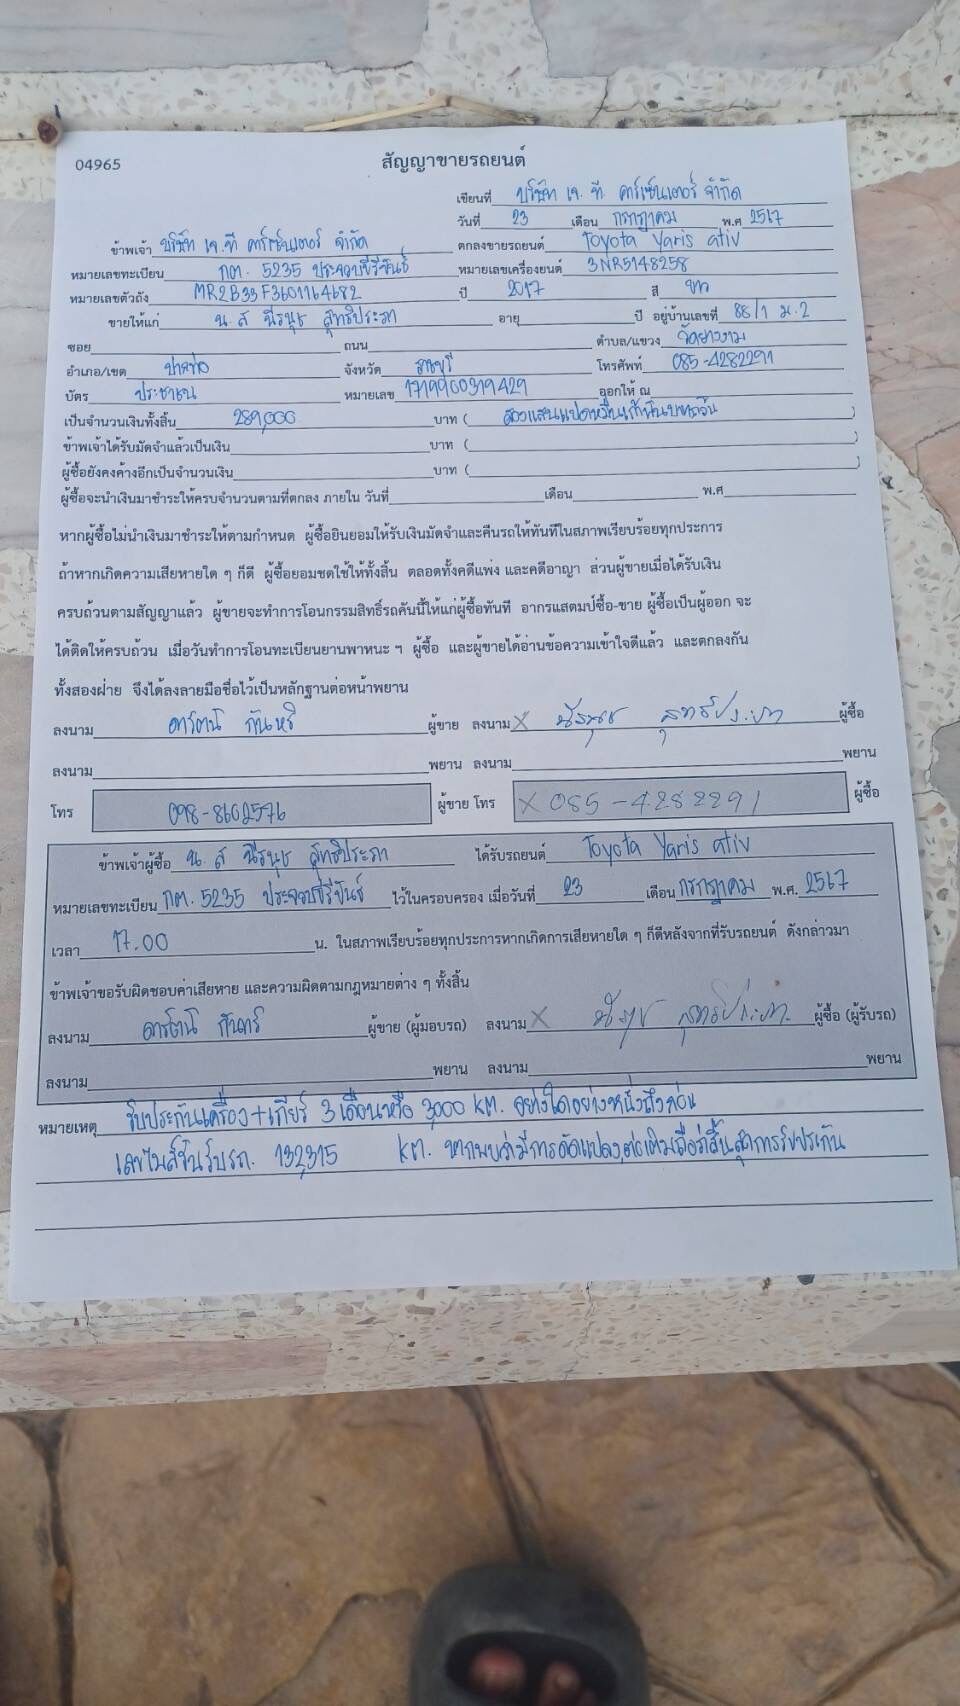 04965
สัญญาขายรถยนต์
เขียนที่ บริษัท เจ. ที. คาร์เซ็นเตอร์ จำกัด
วันที่ 23 เดือน กรกฎาคม พ.ศ 2567
ข้าพเจ้า บริษัท เจ.ที คาร์เซ็นเตอร์ จำกัด ตกลงขายรถยนต์ Toyota Yaris ativ
หมายเลขทะเบียน กต. 5235 ประจวบคีรีขันธ์ หมายเลขเครื่องยนต์ 3NR5148258
หมายเลขตัวถัง MR2B33F3601164682 ปี 2017 สี ขาว
ขายให้แก่ น.ส สุทธิประภา อายุ ปี อยู่บ้านเลขที่ 88/1 ม.2
ซอย ถนน ตำบล/แขวง วัดยางงาม
อำเภอ/เขต ปากท่อ จังหวัด ราชบุรี โทรศัพท์ 085-4282291
บัตร ประชาชน หมายเลข 1719900319429 ออกให้ ณ
เป็นจำนวนเงินทั้งสิ้น 289,000 บาท ( สองแสนแปดหมื่นเก้าพันบาทถ้วน )
ข้าพเจ้าได้รับมัดจำแล้วเป็นเงิน บาท ( )
ผู้ซื้อยังคงค้างอีกเป็นจำนวนเงิน บาท ( )
ผู้ซื้อจะนำเงินมาชำระให้ครบจำนวนตามที่ตกลง ภายใน วันที่ เดือน พ.ศ
หากผู้ซื้อไม่นำเงินมาชำระให้ตามกำหนด ผู้ซื้อยินยอมให้รับเงินมัดจำและคืนรถให้ทันทีในสภาพเรียบร้อยทุกประการ
ถ้าหากเกิดความเสียหายใด ๆ ก็ดี ผู้ซื้อยอมชดใช้ให้ทั้งสิ้น ตลอดทั้งคดีแพ่ง และคดีอาญา ส่วนผู้ขายเมื่อได้รับเงิน
ครบถ้วนตามสัญญาแล้ว ผู้ขายจะทำการโอนกรรมสิทธิ์รถคันนี้ให้แก่ผู้ซื้อทันที อากรแสตมป์ซื้อ-ขาย ผู้ซื้อเป็นผู้ออก จะ
ได้ติดให้ครบถ้วน เมื่อวันทำการโอนทะเบียนยานพาหนะ ฯ ผู้ซื้อ และผู้ขายได้อ่านข้อความเข้าใจดีแล้ว และตกลงกัน
ทั้งสองฝ่าย จึงได้ลงลายมือชื่อไว้เป็นหลักฐานต่อหน้าพยาน
ลงนาม ผู้ขาย ลงนาม X ผู้ซื้อ
ลงนาม พยาน ลงนาม พยาน
โทร 098-8602576 ผู้ขาย โทร X 085-4282291 ผู้ซื้อ
ข้าพเจ้าผู้ซื้อ น.ส สุทธิประภา ได้รับรถยนต์ Toyota Yaris ativ
หมายเลขทะเบียน กต. 5235 ประจวบคีรีขันธ์ ไว้ในครอบครอง เมื่อวันที่ 23 เดือน กรกฎาคม พ.ศ. 2567
เวลา 17.00 น. ในสภาพเรียบร้อยทุกประการหากเกิดการเสียหายใด ๆ ก็ดีหลังจากที่รับรถยนต์ ดังกล่าวมา
ข้าพเจ้าขอรับผิดชอบค่าเสียหาย และความผิดตามกฎหมายต่าง ๆ ทั้งสิ้น
ลงนาม ผู้ขาย (ผู้มอบรถ) ลงนาม X ผู้ซื้อ (ผู้รับรถ)
ลงนาม พยาน ลงนาม พยาน
หมายเหตุ รับประกันเครื่อง+เกียร์ 3 เดือนหรือ 3,000 KM. อย่างใดอย่างหนึ่งถึงก่อน
เลขไมล์วันรับรถ. 132,315 KM. หากพบว่ามีการดัดแปลง,ต่อเติมถือว่าสิ้นสุดการรับประกัน